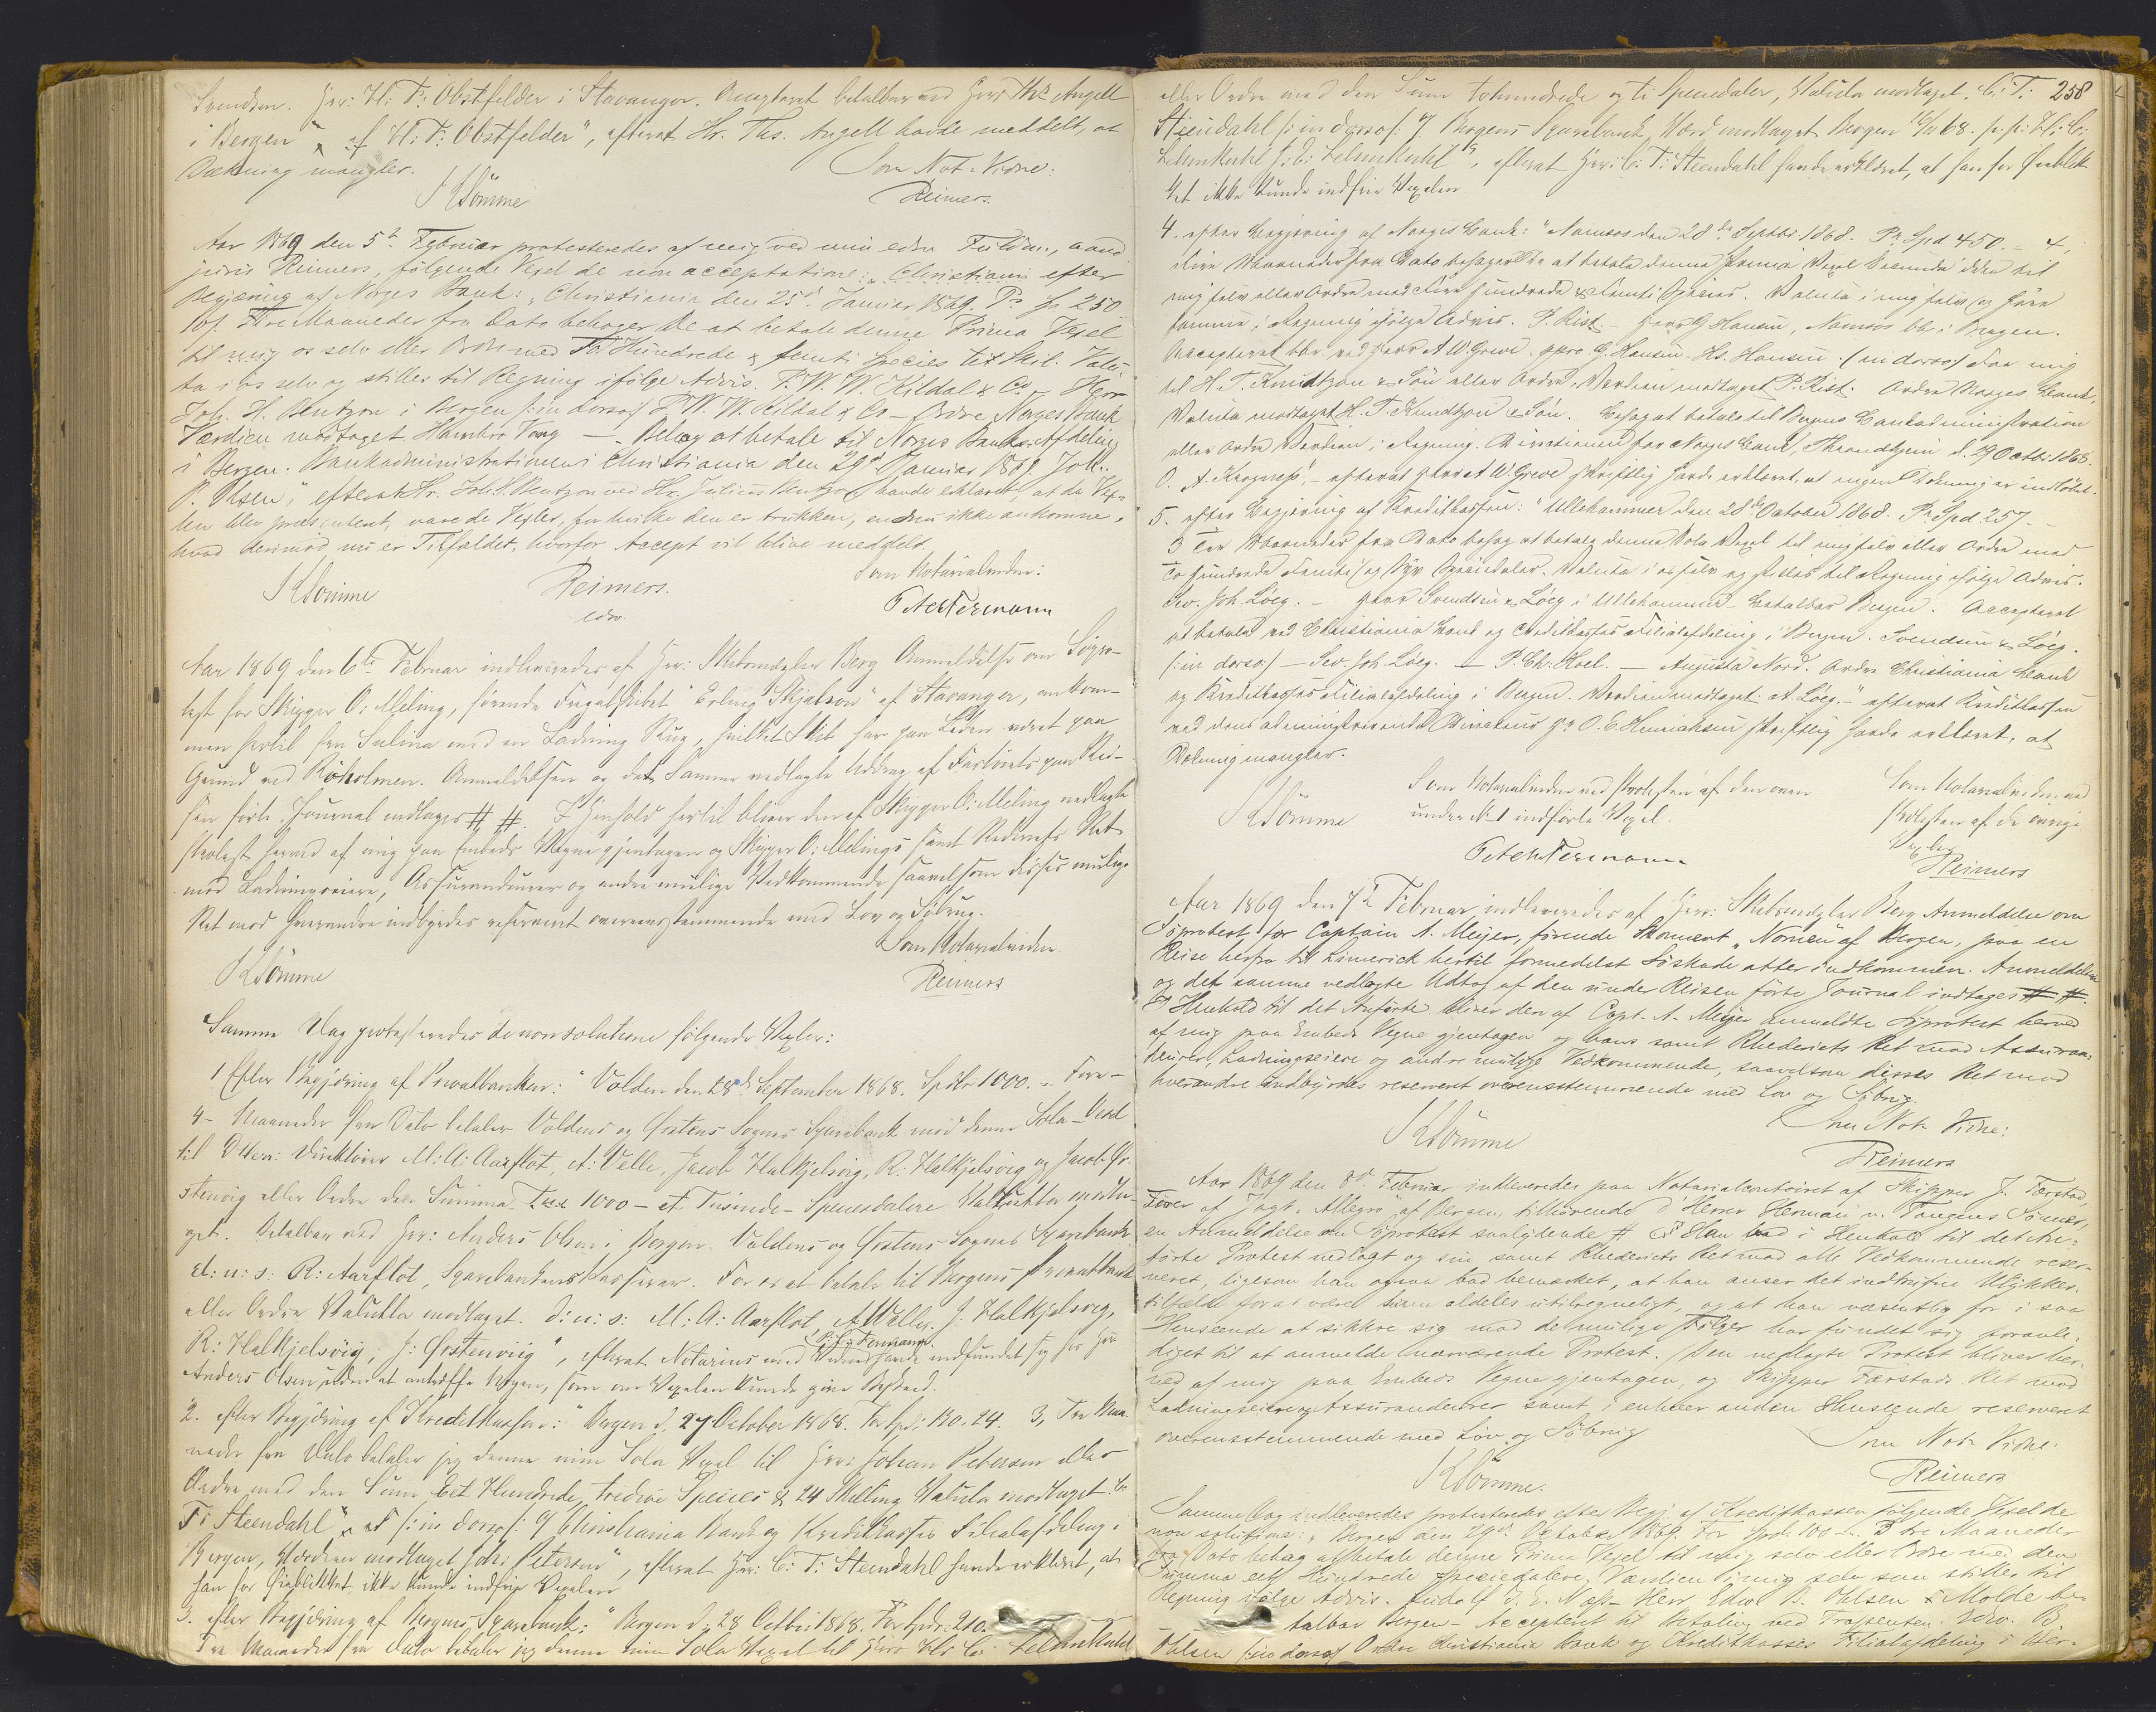 Svendsen. Herr H: T: Obstfelder i Stavanger. Accepteret betalbar ved Herr Ths Angell
i Bergen" af H: T: Obstfelder", efterat Hr. Ths. Angell havde meddelt, at
Dækning mangler.
Som Not. Vidne:
KSömme
Reimers.
Aar 1869 den 5te Februar protesteredes af mig ved min edsv. Fuldm., cand
juris Reimers, følgende Vexel de non acceptatione: Christiania efter
Begjæring af Norges Bank: "Christiania den 25de Januar 1869. Pr Sp 250
Tre Maaneder fra Dato behager De at betale denne Prima Vexel
til os selv eller Ordre med To Hundrede & femti Species Valu-
ta i os selv og stilles til Regning ifølge Advis. P. W. W. Kildal & Co - Herr
Joh. H. Bentzon i Bergen /:in dorso:/ P. W. W. Kildal & Co - Ordre Norges Bank
Værdien modtaget Hambro Vang - Behag at betale til Norges Banks Afdeling
i Bergen. Bankadministrationen i Christiania den 29de Januar 1869. Joh.
P. Olsen", efterat Hr. Joh. H. Bentzon ved Hr. Julius Bentzon havde erklæret, at da Vex-
len blev præsenteret, vare de Vexler, for hvilke den er trukken, endnu ikke ankomne,
hvad derimod nu er Tilfældet, hvorfor Accept vil blive meddelt.
Som Notarialvidne:
KSömme
Reimers.
edsv.
P Achtermann
Aar 1869 den 6te Februar indleveredes af Herr Skibsmægler Berg Anmeldelse om Søpro-
test for Skipper O: Meling, førende Fregatskibet "Erling Skjalson" af Stavanger, ankom-
men hertil fra Sulina med en Ladning Rug, hvilket Skib har paa Leden været paa
Grund ved Röholmen. Anmeldelsen og det Samme vedlagte Uddrag af Fartöiets paa Rei-
sen förte Journal indtages # #. I Henhold hertil bliver den af Skipper O: Meling nedlagte
Protest herved af mig paa Embeds Vegne gjentagen og Skipper O: Melings samt Rederiets Ret
mod Ladningseiere, Assurandeurer og andre mulige Vedkommende saavelsom disses mulige
Ret mod hverandre indbyrdes reserveret overensstemmende med Lov og Söbrug.
Som Notarialvidne.
KSömme
Reimers
Samme Dag protesteredes de non solutione følgende Vexler:
1 Efter Begjæring af Privatbanken: "Volden den 28de September 1868. Spdlr 1000. - Fire -
4 - Maaneder fra Dato betaler Voldens og Ørstens Sognes Sparebank mod denne Sola-Vexel
til DHerr: Direktører M: A: Aarflot, A: Velle, Jacob Halkjelsvig, R: Halkjelsvig og Jacob Ør-
stenvig eller Ordre den Summa 1000 - et Tusinde - Speciesdalere Valuta modta-
get. Betalbar ved Herr: Anders Olsen i Bergen. Voldens og Ørstens Sognes Sparebank
d: u: s: R: Aarflot, Sparebankens Kasserer. For os at betale til Bergens Privatbank
eller Ordre Valuta modtaget. D: u: s: M: A: Aarflot, A Velle, J. Halkjelsvig,
R: Halkjelsvig, J: Ørstenvig", efterat Notarius med Vidne havde indfundet sig hos Herr
Anders Olsen, uden at antræffe Nogen, som om Vexelen kunde give Besked.
2. efter Begjæring af Kreditkassen: "Bergen d. 27 October 1868. For Spd: 130. 24. 3, Tre Maa-
neder fra Dato betaler jeg denne min Sola Vexel til Herr Johan Petersen eller
Ordre med den Sum Eet Hundrede tredive Species & 24 Skilling Valuta modtaget. C:
T: Steendahl" /:in dorso:/ Christiania Bank og Kreditkasses Filialafdeling i
Bergen, Værdien modtaget Joh: Petersen", efterat Herr: C: T: Steendahl havde erklæret, at
han for Øieblikket ikke kunde indfrie Vexelen
3. efter Begjæring af Bergens Sparebank: "Bergen d. 28 Octbr 1868. For Spdr. 210.
Tre Maaneder fra Dato betaler jeg denne min Sola Vexel til Herr Lehmkuhl
258
eller Ordre med den Sum tohundrede og ti Speciedaler, Valuta modtaget. C: T:
Steendahl /:in dorso:/ Bergens Sparebank, Værd modtaget Bergen 68.
Lehmkuhl", efterat Herr: C: T: Steendahl havde erklæret, at han for Øieblik-
ket ikke kunde indfrie Vexelen
4. efter Begjæring af Norges Bank: "Namsos den 28de Septbr 1868. Pr Spd 450. - 4,
fire Maaneder fra Dato behager De at betale denne Prima Vexel Secunda ikke til
mig selv eller Ordre med fire hundrede & femti Species. Valuta i mig selv og före
samme i Regning ifølge Advis. P. Rist - Herr G Hansen, Namsos bb: i Bergen.
Accepteret bbr. ved Herr A W. Greve. ppro. G. Hansen - Hs. Hansen. (in dorso) For mig
til H. T. Knudtzon & Sön eller Ordre. Værdien modtaget P. Rist. Ordre Norges Bank,
Valuta modtaget H. T. Knudtzon & Sön. Behag at betale til Bergens Bankadministration
eller Ordre Værdien i Regning. Direktionen for Norges Bank, Throndhjem d. 29 Octbr 1868.
O. A. Krogness", - efterat Herr A W. Greve skriftlig havde erklæret, at ingen Dækning er indløbet.
5. efter Begjæring af Kreditkassen: "Ullehammer den 28de October 1868. Pr Spd 257. -
3 tre Maaneder fra Dato behag at betale denne Sola Vexel til mig selv eller Ordre med
To hundrede Femti og Syv Speciedaler. Valuta i os selv og stilles til Regning ifølge Advis.
Sev. Joh. Löeg. - Herr Svendsen & Löeg i Ullehammer - Betalbar Bergen. Accepteret
at betale ved Christiania Bank og Creditkasses Filialafdeling i Bergen. Svendsen & Löeg.
/:in dorso:/ - Sev. Joh. Löeg. - P. Chr: Koel. - Augusta Nord. Ordre Christiania Bank
og Kreditkasses Filialafdeling i Bergen. Værdien modtaget. A Löeg." - efterat Kreditkassen
ved dens administrerende Directeur Hr O. C. Henrichsen skriftlig havde erklæret, at
Dækning mangler.
Som Notarialvidne ved Protesten af den oven
under No 1 indførte Vexel.
Som Notarialvidne ved
Protesten af de övrige
Vexler
KSömme
P Achtermann
Reimers
Aar 1869 den 7de Februar indleveredes af Herr: Skibsmægler Berg Anmeldelse om
Söprotest for Captain A. Meyer, førende Skonnert "Nornen" af Bergen, paa en
Reise herfra til Limerick hertil formedelst Söskade atter indkommen. Anmeldelsen
og det samme vedlagte Udtog af den under Reisen förte Journal indtages # #.
I Henhold til det Anførte bliver den af Capt. A. Meyer anmeldte Söprotest herved
af mig paa Embeds Vegne gjentagen og hans samt Rhederiets Ret mod Assuran-
deurer, Ladningseiere og andre mulige Vedkommende, saavelsom disses Ret mod
hverandre indbyrdes reserveret overensstemmende med Lov og Söbrug.
Som Not. Vidne:
KSömme
Reimers
Aar 1869 den 8de Februar indleveredes paa Notarialcontoiret af Skipper J. Færstad,
Fører af Jagt "Allegro" af Bergen, tilhørende d'Herrer Herman v. Tangens Sönner,
en Anmeldelse om Söprotest saalydende # Han bad i Henhold til det An-
førte Protest nedlagt og sin samt Rhederiets Ret mod alle Vedkommende reser-
veret, ligesom han ogsaa bad bemærket, at han anser det indtrufne Ulykkes-
tilfælde for at være aldeles utilregneligt, og at han væsentlig for i saa
Henseende at sikkre sig mod de mulige Fölger har fundet sig foranle-
diget til at anmelde nærværende Protest. Den nedlagte Protest bliver her-
ved af mig paa Embeds Vegne gjentagen, og Skipper Færstads Ret mod
Ladningseiere og Assurandeurer samt i enhver anden Henseende reserveret
overensstemmende med Lov og Söbrug
Som Not. Vidne.
KSömme.
Reimers
Samme Dag indleveredes protesteredes efter Begj. af Kreditkassen følgende Vexel de
non solutione: "Bergen den 29de October 1869. For Spd. 100 3 tre Maaneder
fra Dato behag at betale denne Prima Vexel til mig selv eller Ordre med den
Summa ett Hundrede Speciedalere. Værdien i mig selv som stilles til
Regning ifølge Advis. Rudolf J. E. Næss - Herr Edw. B. Ohlsen i Molde be-
talbar Bergen - Accepteret til Betaling ved Trassenten. Edw. B.
Ohlsen /:in dorso:/ Ordre Christiania Bank og Kreditkasses Filialafdeling i Ber-